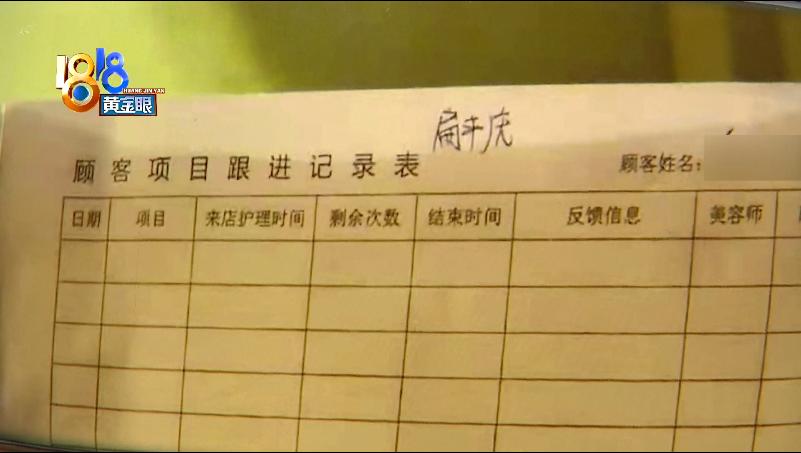 1818
HUANG JIN YAN
黄金眼
扁平疣
顾客项目跟进记录表
顾客姓名:
日期 项目 来店护理时间 剩余次数 结束时间 反馈信息 美容师